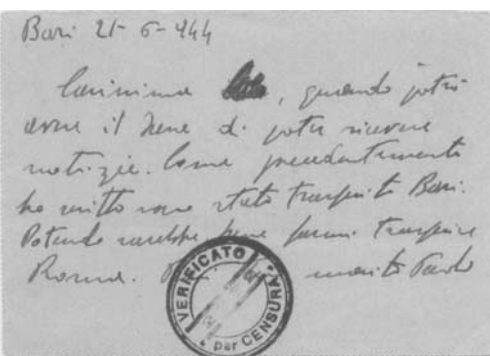 Bari 21-6-944
Carissima , quando potrò
avere il bene di poter ricevere
notizie. Come precedentemente
ho scritto sono stato trasferito Bari.
Potendo sarebbe bene farmi trasferire
Roma. marito Paolo
VERIFICATO per CENSURA